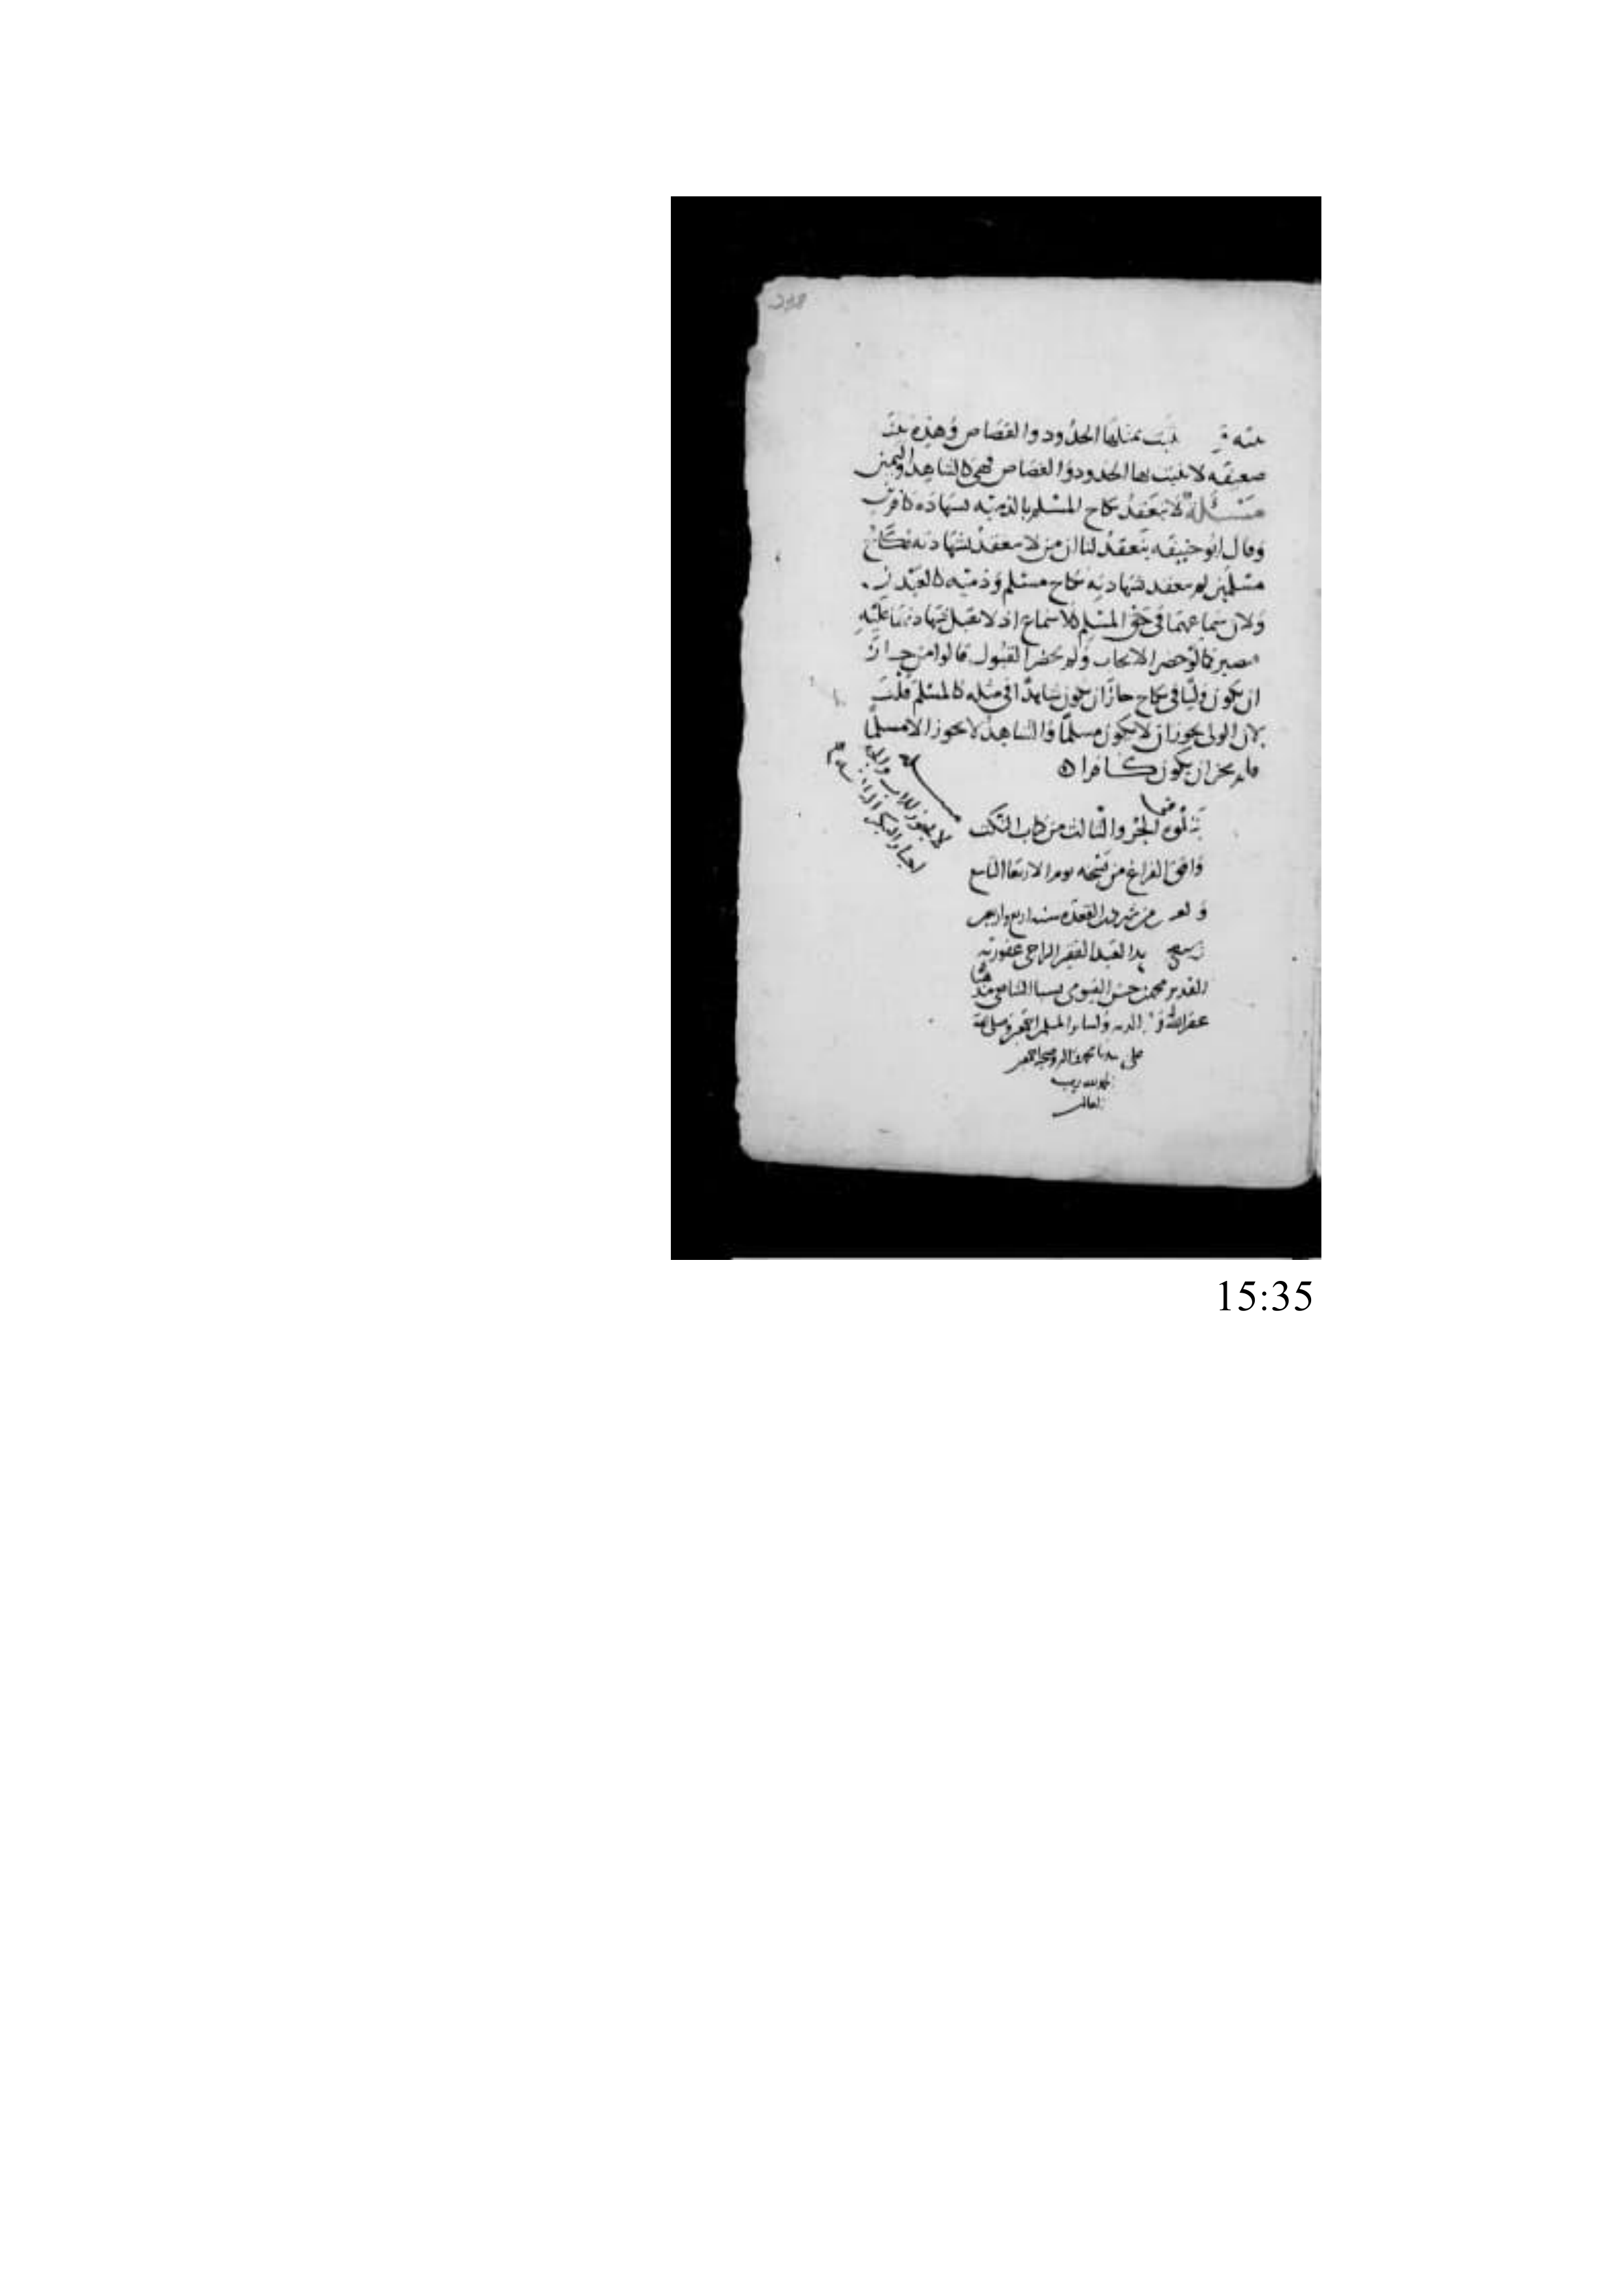 بينة قو يثبت بمثلها الحدود والقصاص وهذه بينة
ضعيفه لا يثبت بها الحدود والقصاص فهي كالشاهد واليمين
مسئلة لا ينعقد نكاح المسلم بالذمية بشهادة كافرين
وقال ابو حنيفه ينعقد لنا ان من لا ينعقد بشهادته نكاح
مسلمين لم ينعقد بشهادته نكاح مسلم وذميه كالعبدين
ولان سماعهما في حق المسلم كلا سماع اذ لا تقبل شهادتهما عليه
فيصير كما لو حضر الايجاب ولم يحضر القبول قالوا من جاز
ان يكون وليا في نكاح جاز ان يكون شاهدا في مثله كالمسلم قلنا
لان الولي يجوز ان لا يكون مسلما والشاهد لا يجوز الا مسلما
فلم يجز ان يكون كافرا
لا يجوز للاب والجد
اجبار البكر
يتلوه الجزو الثالث من كتاب النكت
وافق الفراغ من نسخه يوم الاربعا التاسع
من شهر ذي القعده سنه اربع واربعين
يد العبد الفقير الراجي عفو ربه
القدير محمد بن حسن الفيومي نسبا الشافعي مذهبا
غفر الله ولوالديه ولساير المسلمين اجمعين وصلى الله
على سيدنا محمد واله وصحبه اجمعين
الحمد لله رب
العالمين
15:35